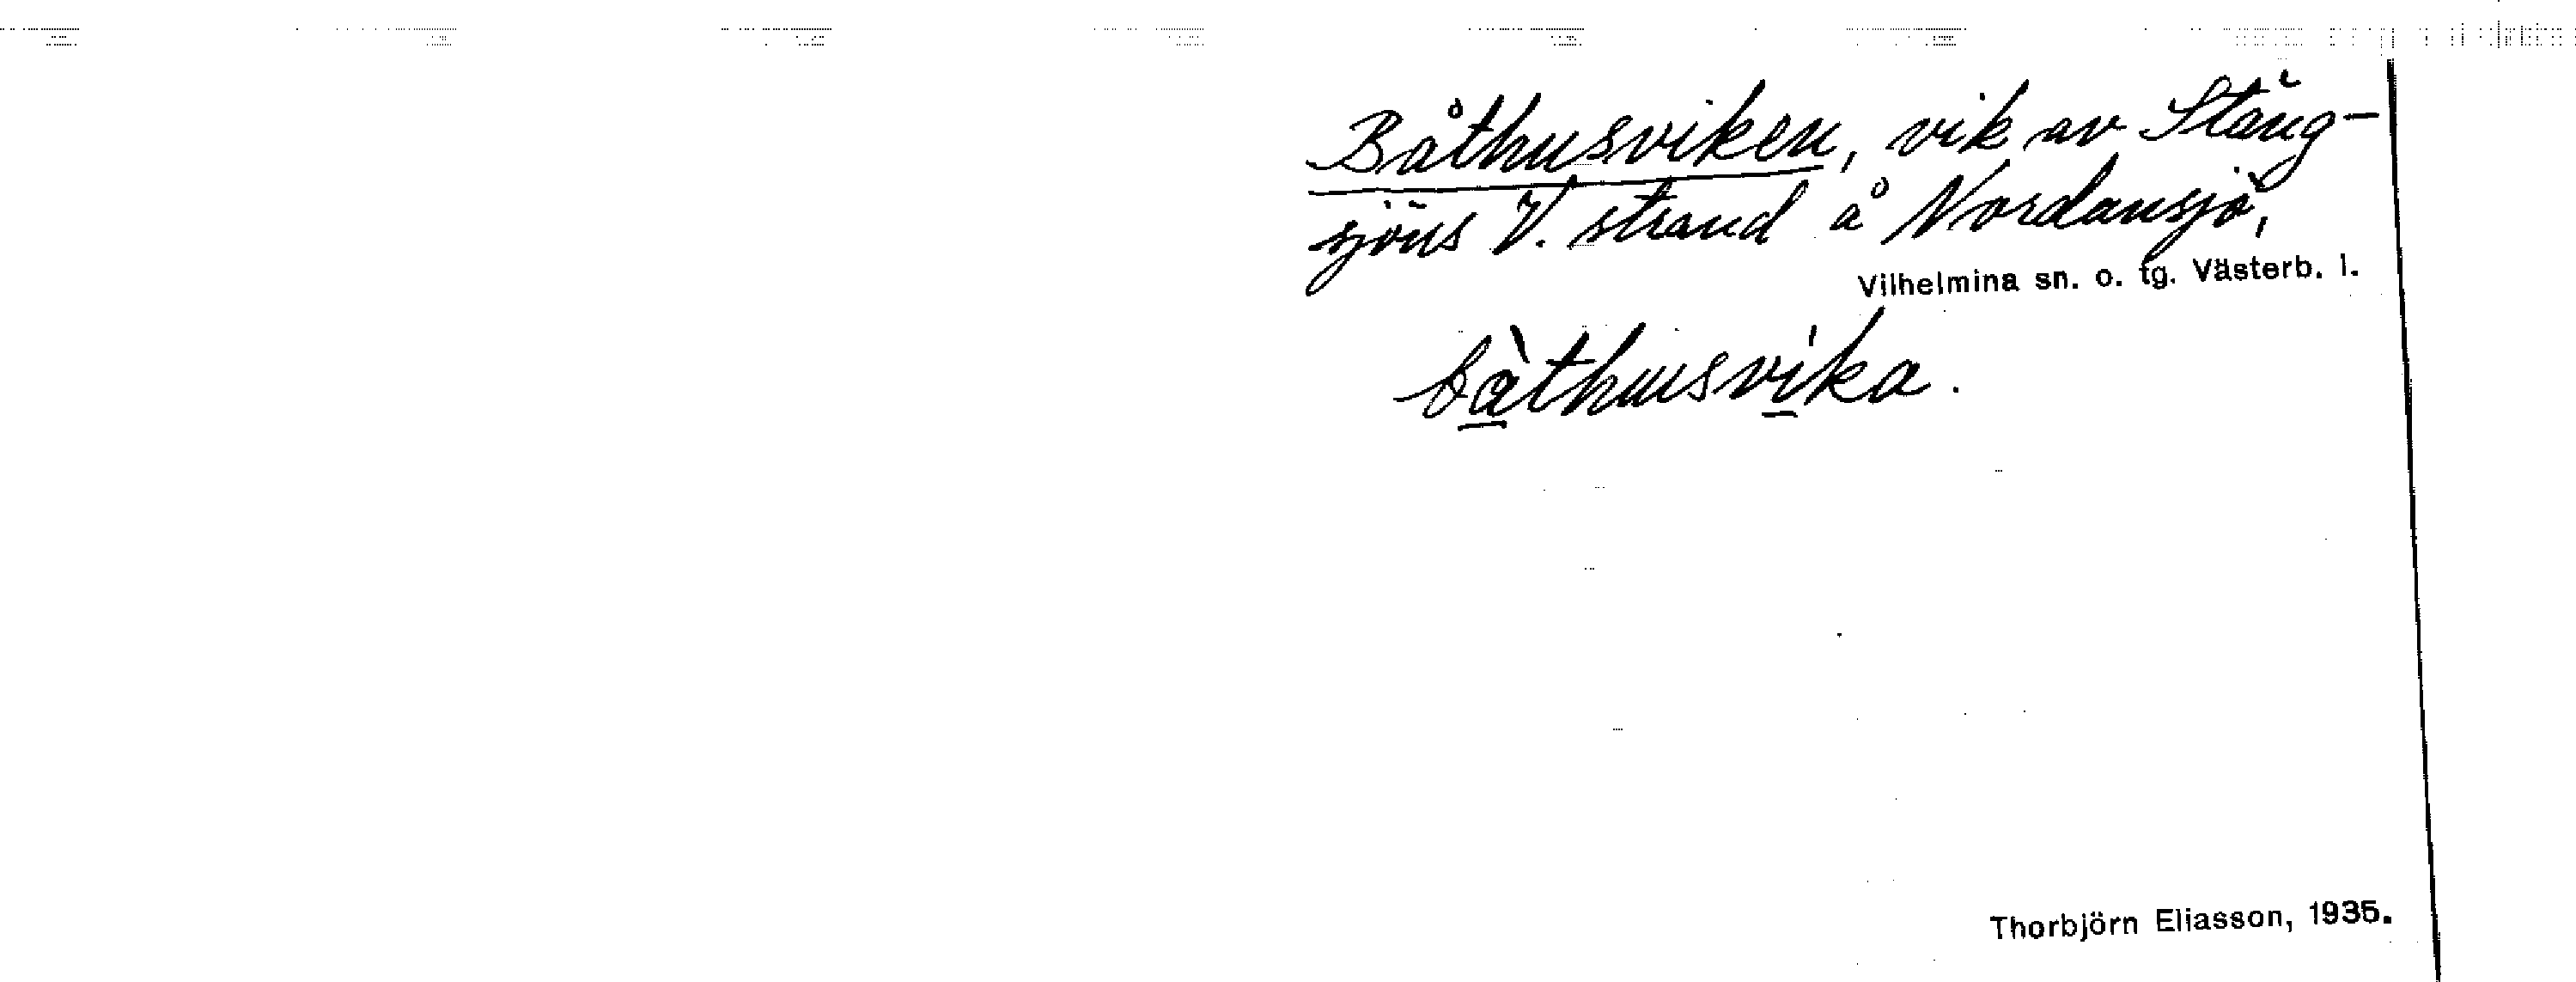 Båthusviken, vik av Stång-
sjöns V. strand å Nordansjö,
Vilhelmina sn. o. tg. Västerb. l.
bàthusvika.
Thorbjörn Eliasson, 1935.